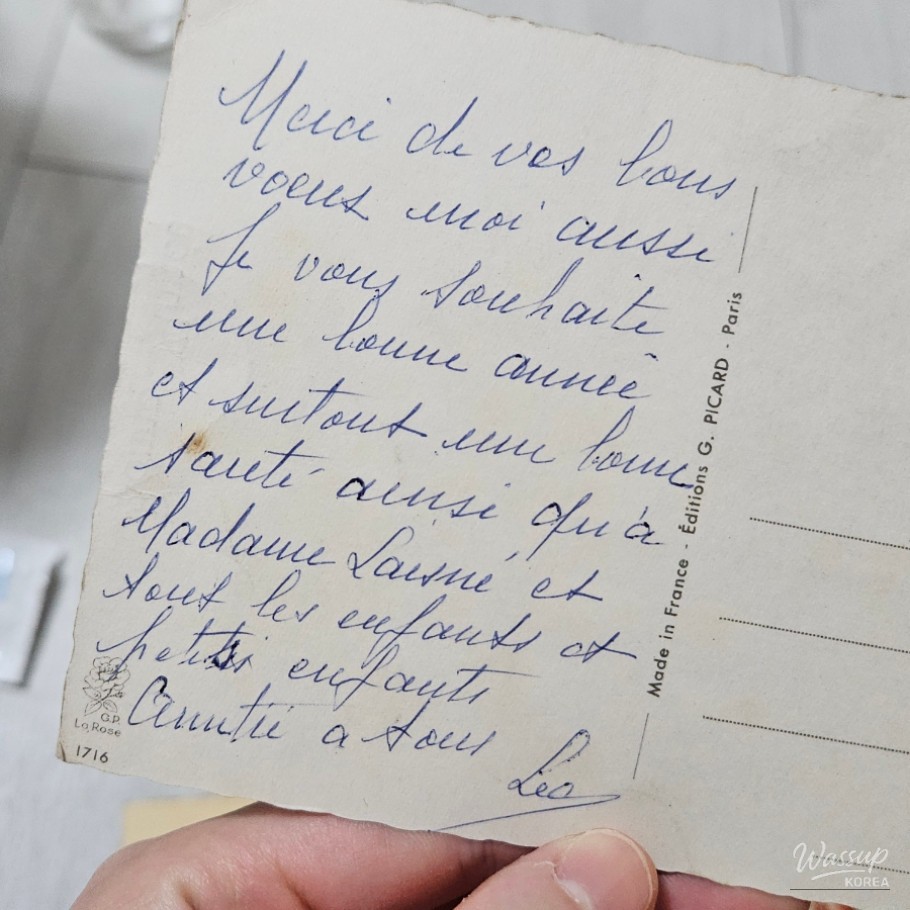 Merci de vos bons
voeux moi aussi
Je vous souhaite
une bonne année
et surtout une bonne
santé ainsi qu'à
Madame Laisné, et
tout les enfants et
petits enfants
Amitié a tous
Léo
Made in France - Éditions G. PICARD - Paris
G.P.
La Rose
1716
Wassup
KOREA